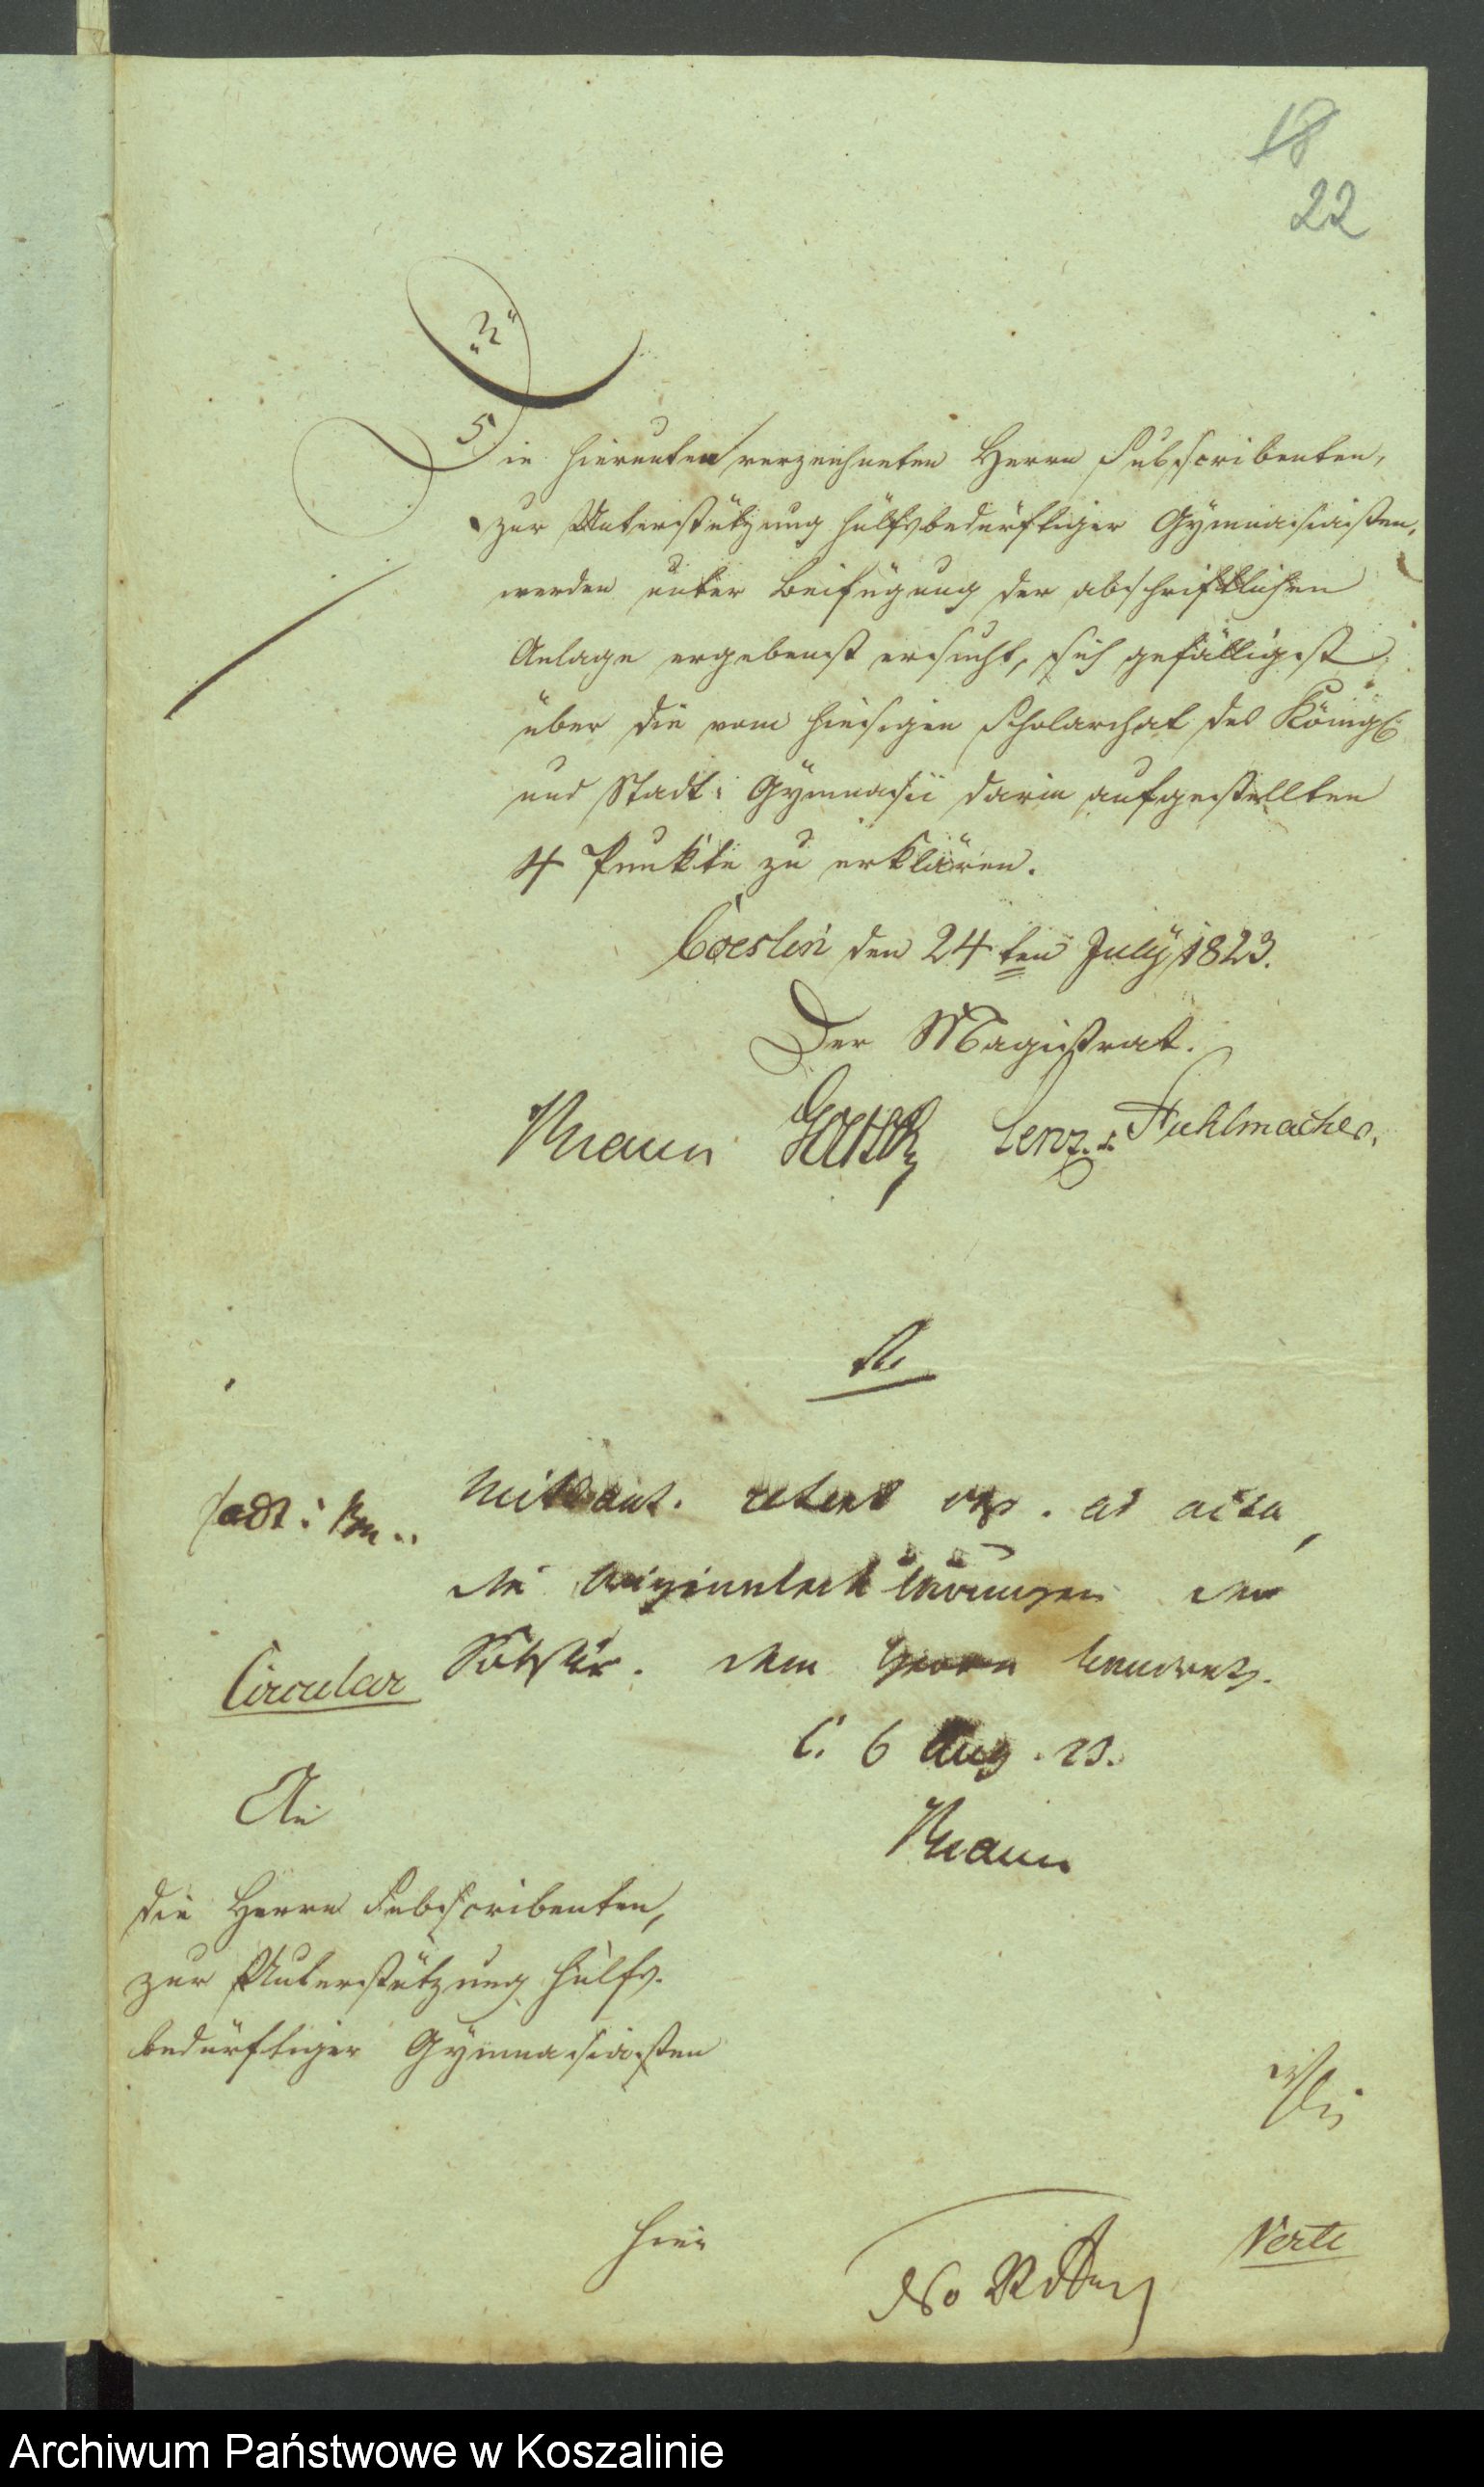 18
22
Die hierunten verzeichneten Herrn Subscribenten,
zur Unterstützung hülfsbedürftiger Gymnasiasten,
werden unter Beifügung der abschriftlichen
Anlage ergebenst ersucht, sich gefälligst
über die vom hiesigen Scholarchat des Königl.
und Stadt: Gymnasii darin aufgestellten
4 Punkte zu erklären.
Coeslin den 24ten July 1823.
Der Magistrat.
Braun Lenz. Fuhlmacher.
ad acta,
die Originalerklärungen der
dem Herrn
Circular
C. 6 Aug. 23.
An
Braun
die Herrn Subscribenten,
zur Unterstützung hülfs-
bedürftiger Gymnasiasten
hier
Verte
Archiwum Państwowe w Koszalinie